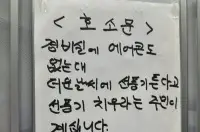 < 호소문 >
경비실에 에어콘도
없는대
더운날씨에 선풍기튼다고
선풍기 치우라는 주민이
계십니다